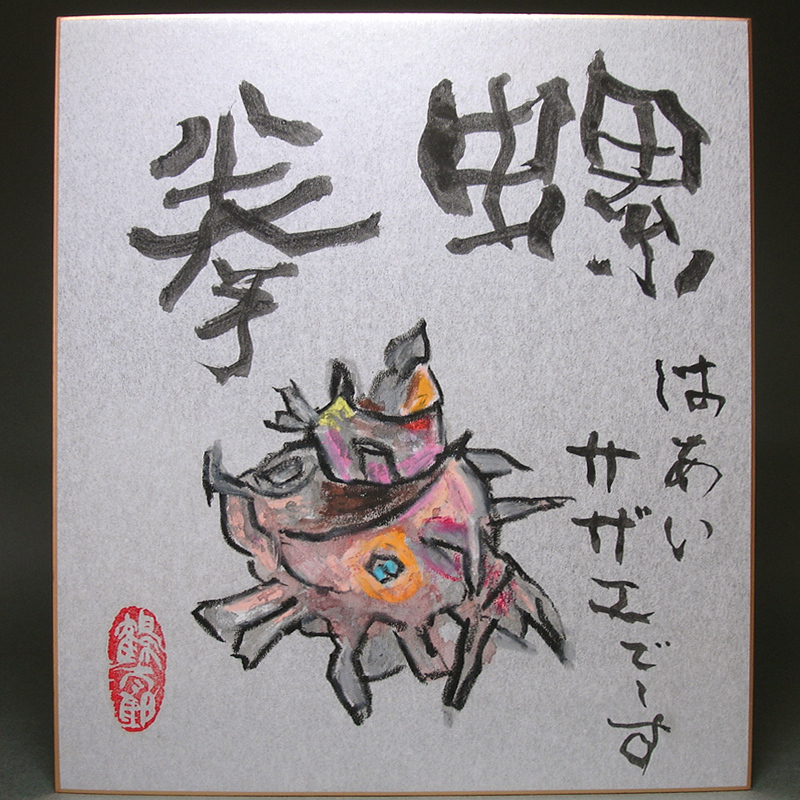 拳螺
はあい
サザエでーす
鶴太郎